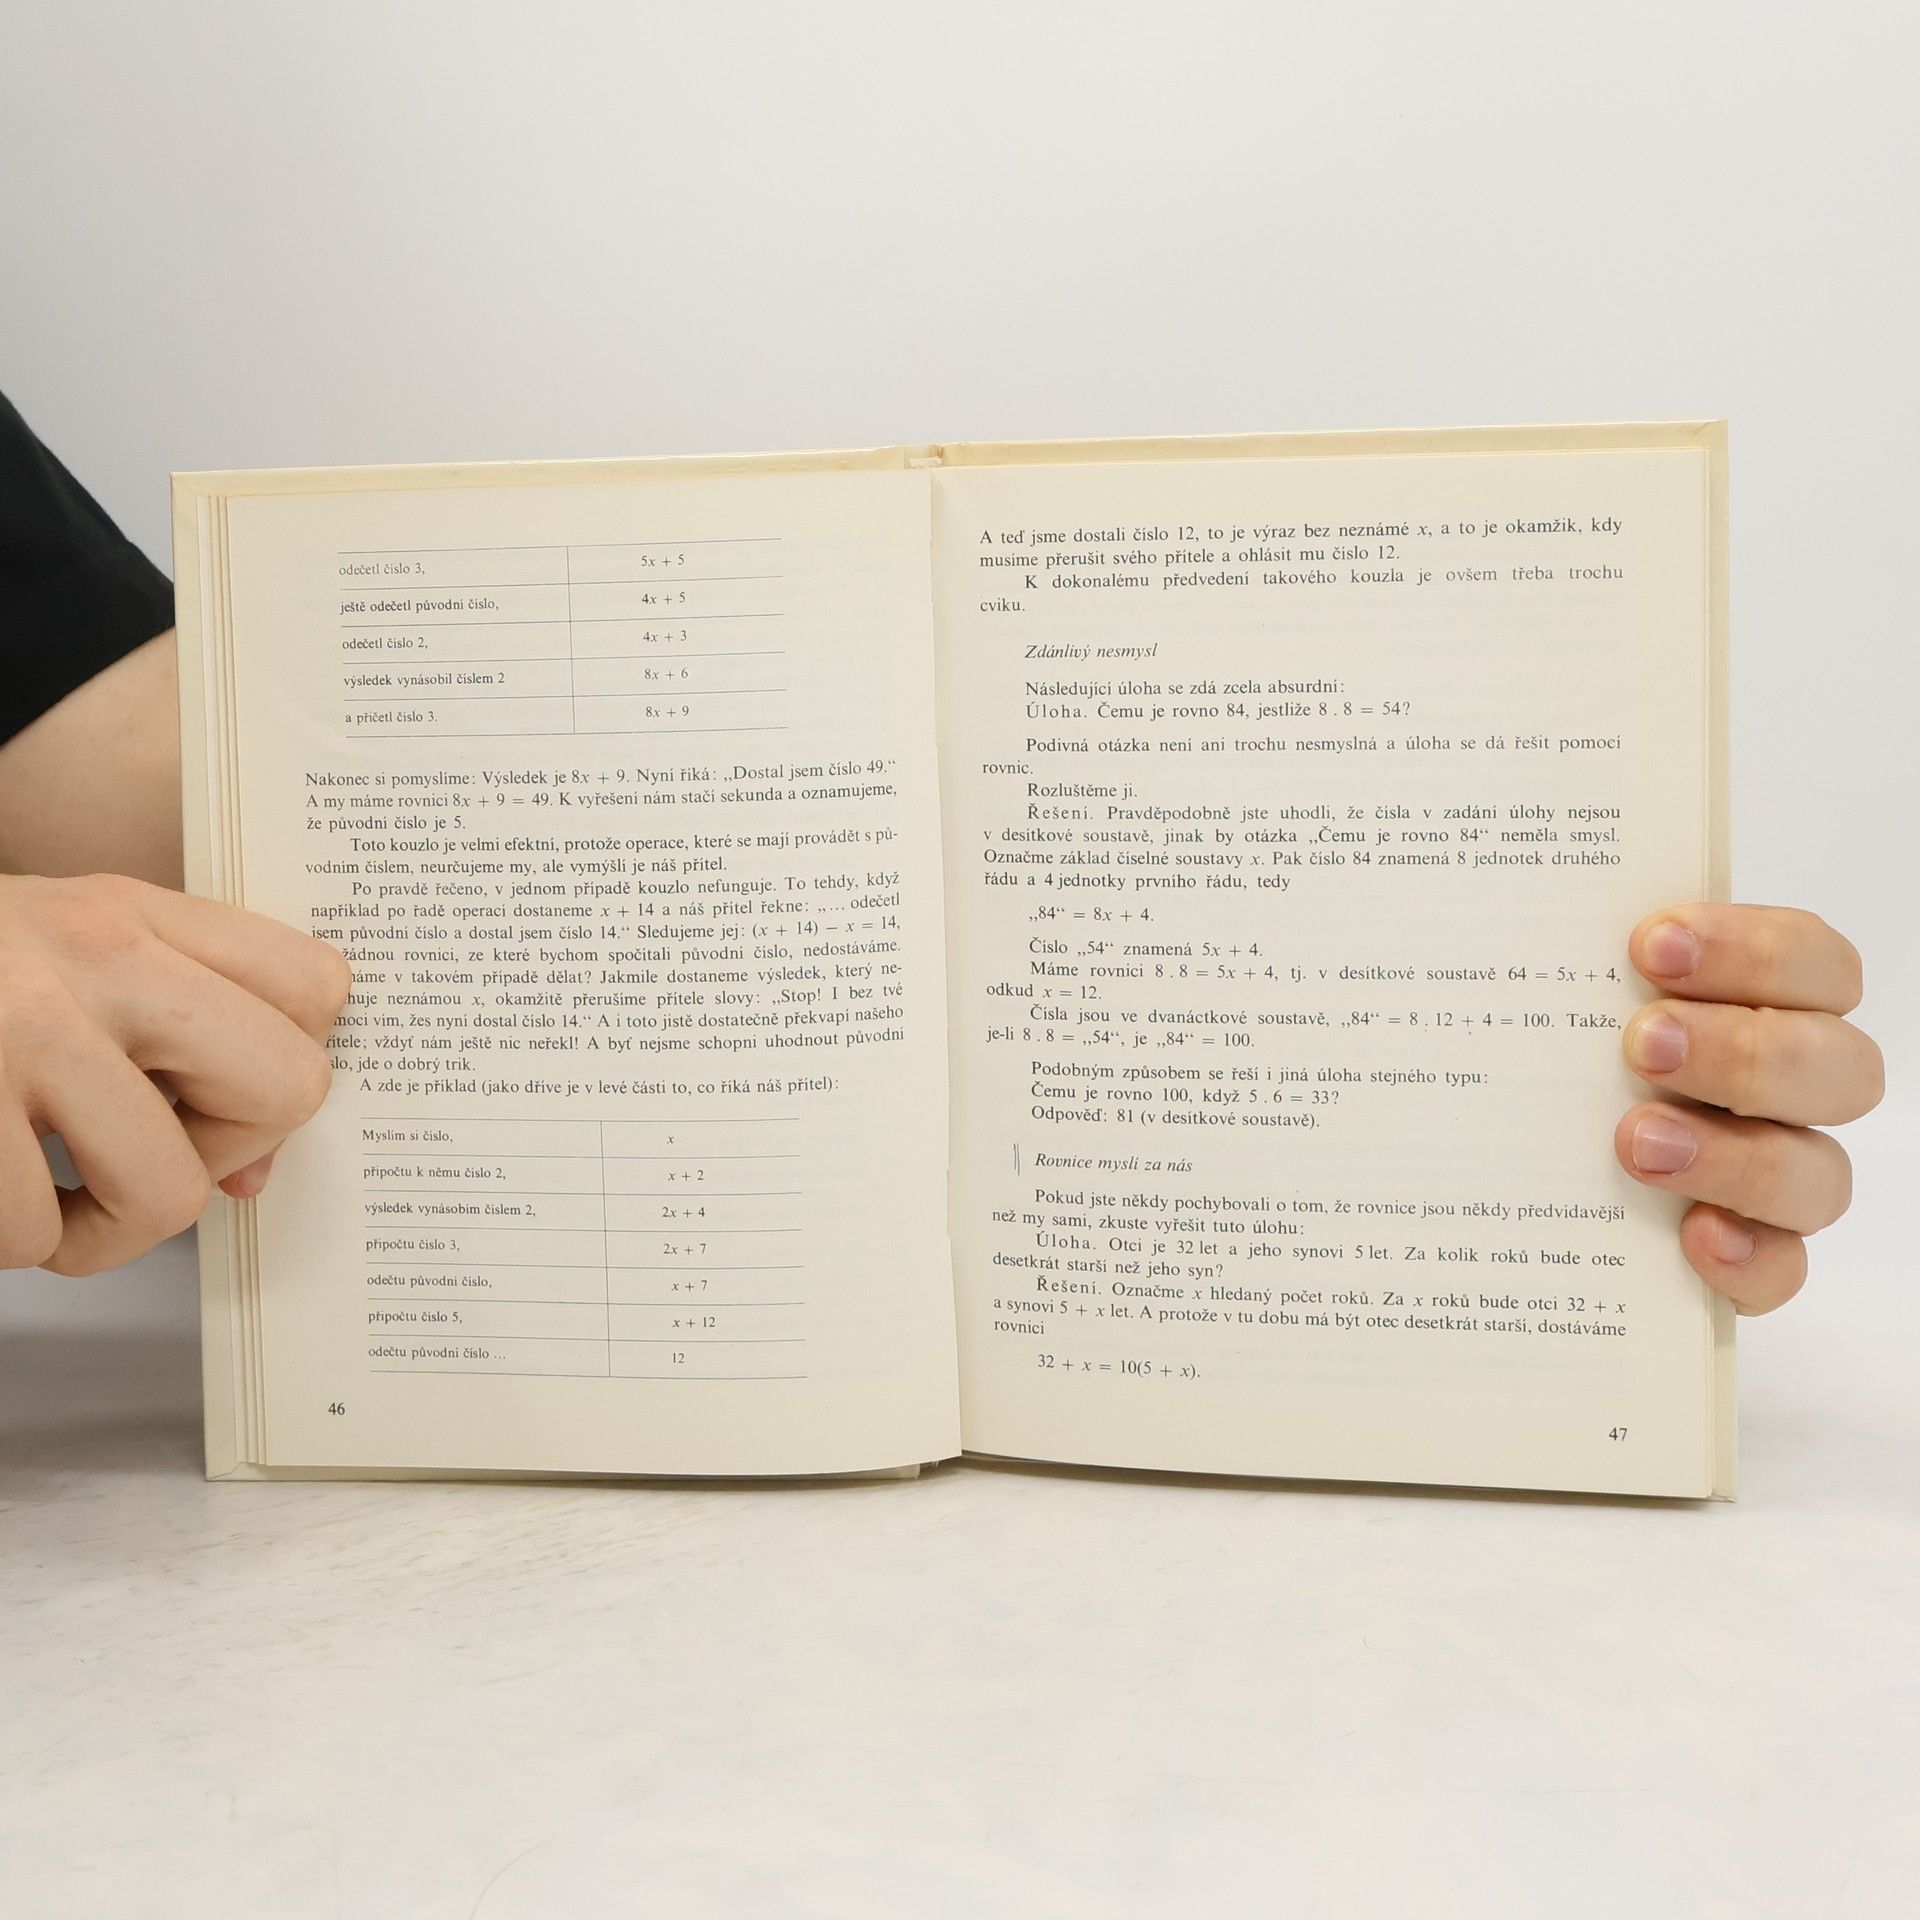 odečetl číslo 3, 5x + 5
ještě odečetl původní číslo, 4x + 5
odečetl číslo 2, 4x + 3
výsledek vynásobil číslem 2 8x + 6
a přičetl číslo 3. 8x + 9
Nakonec si pomyslíme: Výsledek je 8x + 9. Nyní říká: „Dostal jsem číslo 49.“
A my máme rovnici 8x + 9 = 49. K vyřešení nám stačí sekunda a oznamujeme,
že původní číslo je 5.
Toto kouzlo je velmi efektní, protože operace, které se mají provádět s pů-
vodním číslem, neurčujeme my, ale vymýšlí je náš přítel.
Po pravdě řečeno, v jednom případě kouzlo nefunguje. To tehdy, když
například po řadě operací dostaneme x + 14 a náš přítel řekne: „... odečetl
jsem původní číslo a dostal jsem číslo 14.“ Sledujeme jej: (x + 14) − x = 14,
žádnou rovnici, ze které bychom spočítali původní číslo, nedostáváme.
máme v takovém případě dělat? Jakmile dostaneme výsledek, který ne-
huje neznámou x, okamžitě přerušíme přítele slovy: „Stop! I bez tvé
moci vím, žes nyní dostal číslo 14.“ A i toto jistě dostatečně překvapí našeho
řítele; vždyť nám ještě nic neřekl! A byť nejsme schopni uhodnout původní
slo, jde o dobrý trik.
A zde je příklad (jako dříve je v levé části to, co říká náš přítel):
Myslím si číslo, x
připočtu k němu číslo 2, x + 2
výsledek vynásobím číslem 2, 2x + 4
připočtu číslo 3, 2x + 7
odečtu původní číslo, x + 7
připočtu číslo 5, x + 12
odečtu původní číslo ... 12
46
A teď jsme dostali číslo 12, to je výraz bez neznámé x, a to je okamžik, kdy
musíme přerušit svého přítele a ohlásit mu číslo 12.
K dokonalému předvedení takového kouzla je ovšem třeba trochu
cviku.
Zdánlivý nesmysl
Následující úloha se zdá zcela absurdní:
Úloha. Čemu je rovno 84, jestliže 8 . 8 = 54?
Podivná otázka není ani trochu nesmyslná a úloha se dá řešit pomocí
rovnic.
Rozluštěme ji.
Řešení. Pravděpodobně jste uhodli, že čísla v zadání úlohy nejsou
v desítkové soustavě, jinak by otázka „Čemu je rovno 84“ neměla smysl.
Označme základ číselné soustavy x. Pak číslo 84 znamená 8 jednotek druhého
řádu a 4 jednotky prvního řádu, tedy
„84“ = 8x + 4.
Číslo „54“ znamená 5x + 4.
Máme rovnici 8 . 8 = 5x + 4, tj. v desítkové soustavě 64 = 5x + 4,
odkud x = 12.
Čísla jsou ve dvanáctkové soustavě, „84“ = 8 . 12 + 4 = 100. Takže,
je-li 8 . 8 = „54“, je „84“ = 100.
Podobným způsobem se řeší i jiná úloha stejného typu:
Čemu je rovno 100, když 5 . 6 = 33?
Odpověď: 81 (v desítkové soustavě).
Rovnice myslí za nás
Pokud jste někdy pochybovali o tom, že rovnice jsou někdy předvídavější
než my sami, zkuste vyřešit tuto úlohu:
Úloha. Otci je 32 let a jeho synovi 5 let. Za kolik roků bude otec
desetkrát starší než jeho syn?
Řešení. Označme x hledaný počet roků. Za x roků bude otci 32 + x
a synovi 5 + x let. A protože v tu dobu má být otec desetkrát starší, dostáváme
rovnici
32 + x = 10(5 + x).
47